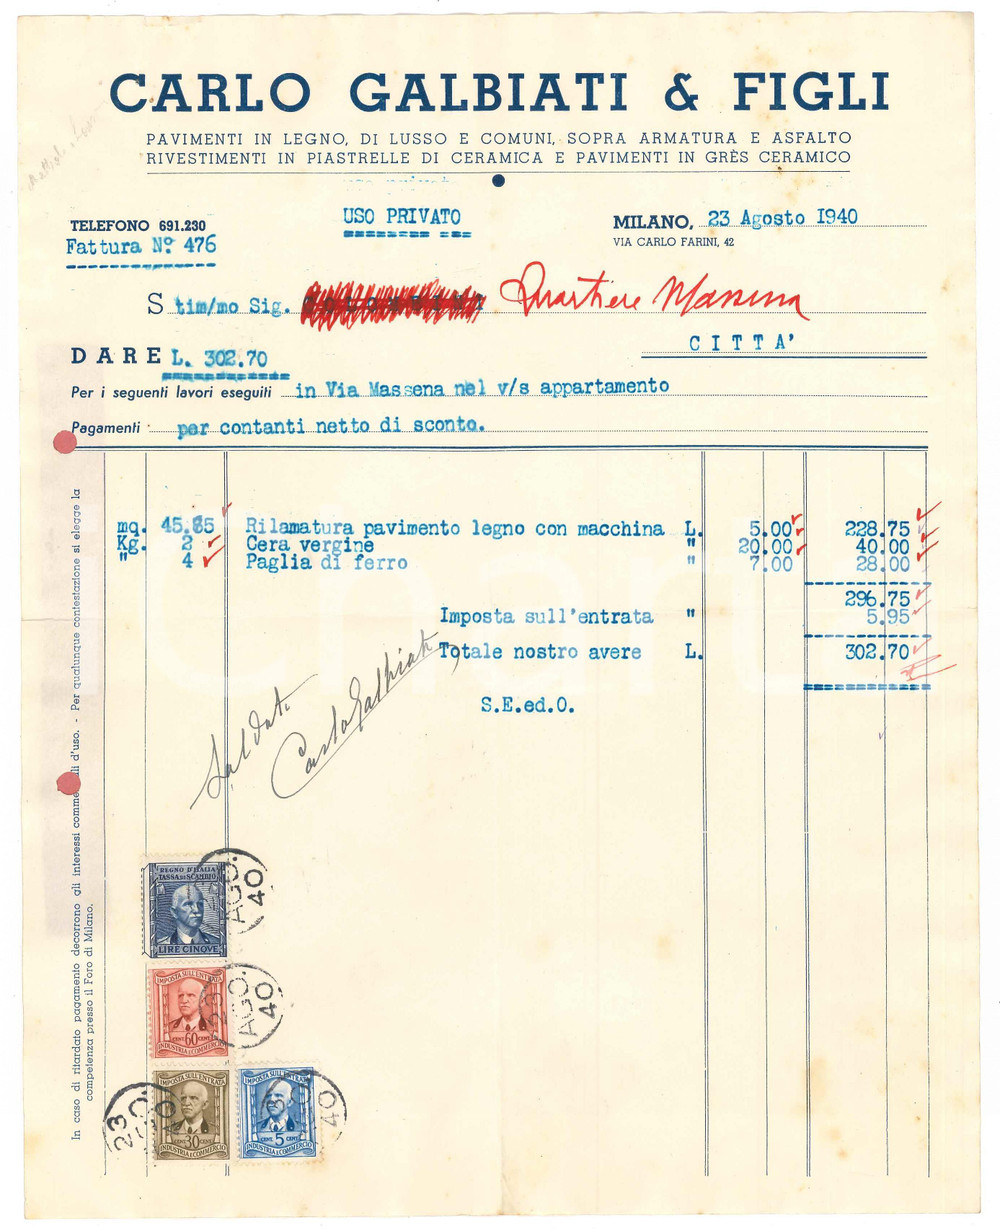 CARLO GALBIATI & FIGLI
PAVIMENTI IN LEGNO, DI LUSSO E COMUNI, SOPRA ARMATURA E ASFALTO
RIVESTIMENTI IN PIASTRELLE DI CERAMICA E PAVIMENTI IN GRÈS CERAMICO
TELEFONO 691.230
USO PRIVATO
MILANO, 23 Agosto 1940
Fattura Nº 476
VIA CARLO FARINI, 42
S tim/mo Sig. Quartiere Massena
CITTA'
DARE L. 302.70
Per i seguenti lavori eseguiti in Via Massena nel v/s appartamento
Pagamenti per contanti netto di sconto.
mq. 45.75 Rilamatura pavimento legno con macchina L. 5.00 228.75
Kg. 2 Cera vergine " 20.00 40.00
" 4 Paglia di ferro " 7.00 28.00
296.75
Imposta sull'entrata " 5.95
Totale nostro avere L. 302.70
S.E.ed.O.
Saldato
Carlo Galbiati
In caso di ritardato pagamento decorrono gli interessi commerciali d'uso. - Per qualunque contestazione si elegge la
competenza presso il Foro di Milano.
REGNO D'ITALIA
TASSA DI SCAMBIO
LIRE CINQUE
AGO.
40
IMPOSTA SULL'ENTRATA
CENT 60 CENT
INDUSTRIA E COMMERCIO
23
AGO.
40
IMPOSTA SULL'ENTRATA
CENT 30 CENT
INDUSTRIA E COMMERCIO
23
IMPOSTA SULL'ENTRATA
CENT 5 CENT
INDUSTRIA E COMMERCIO
40